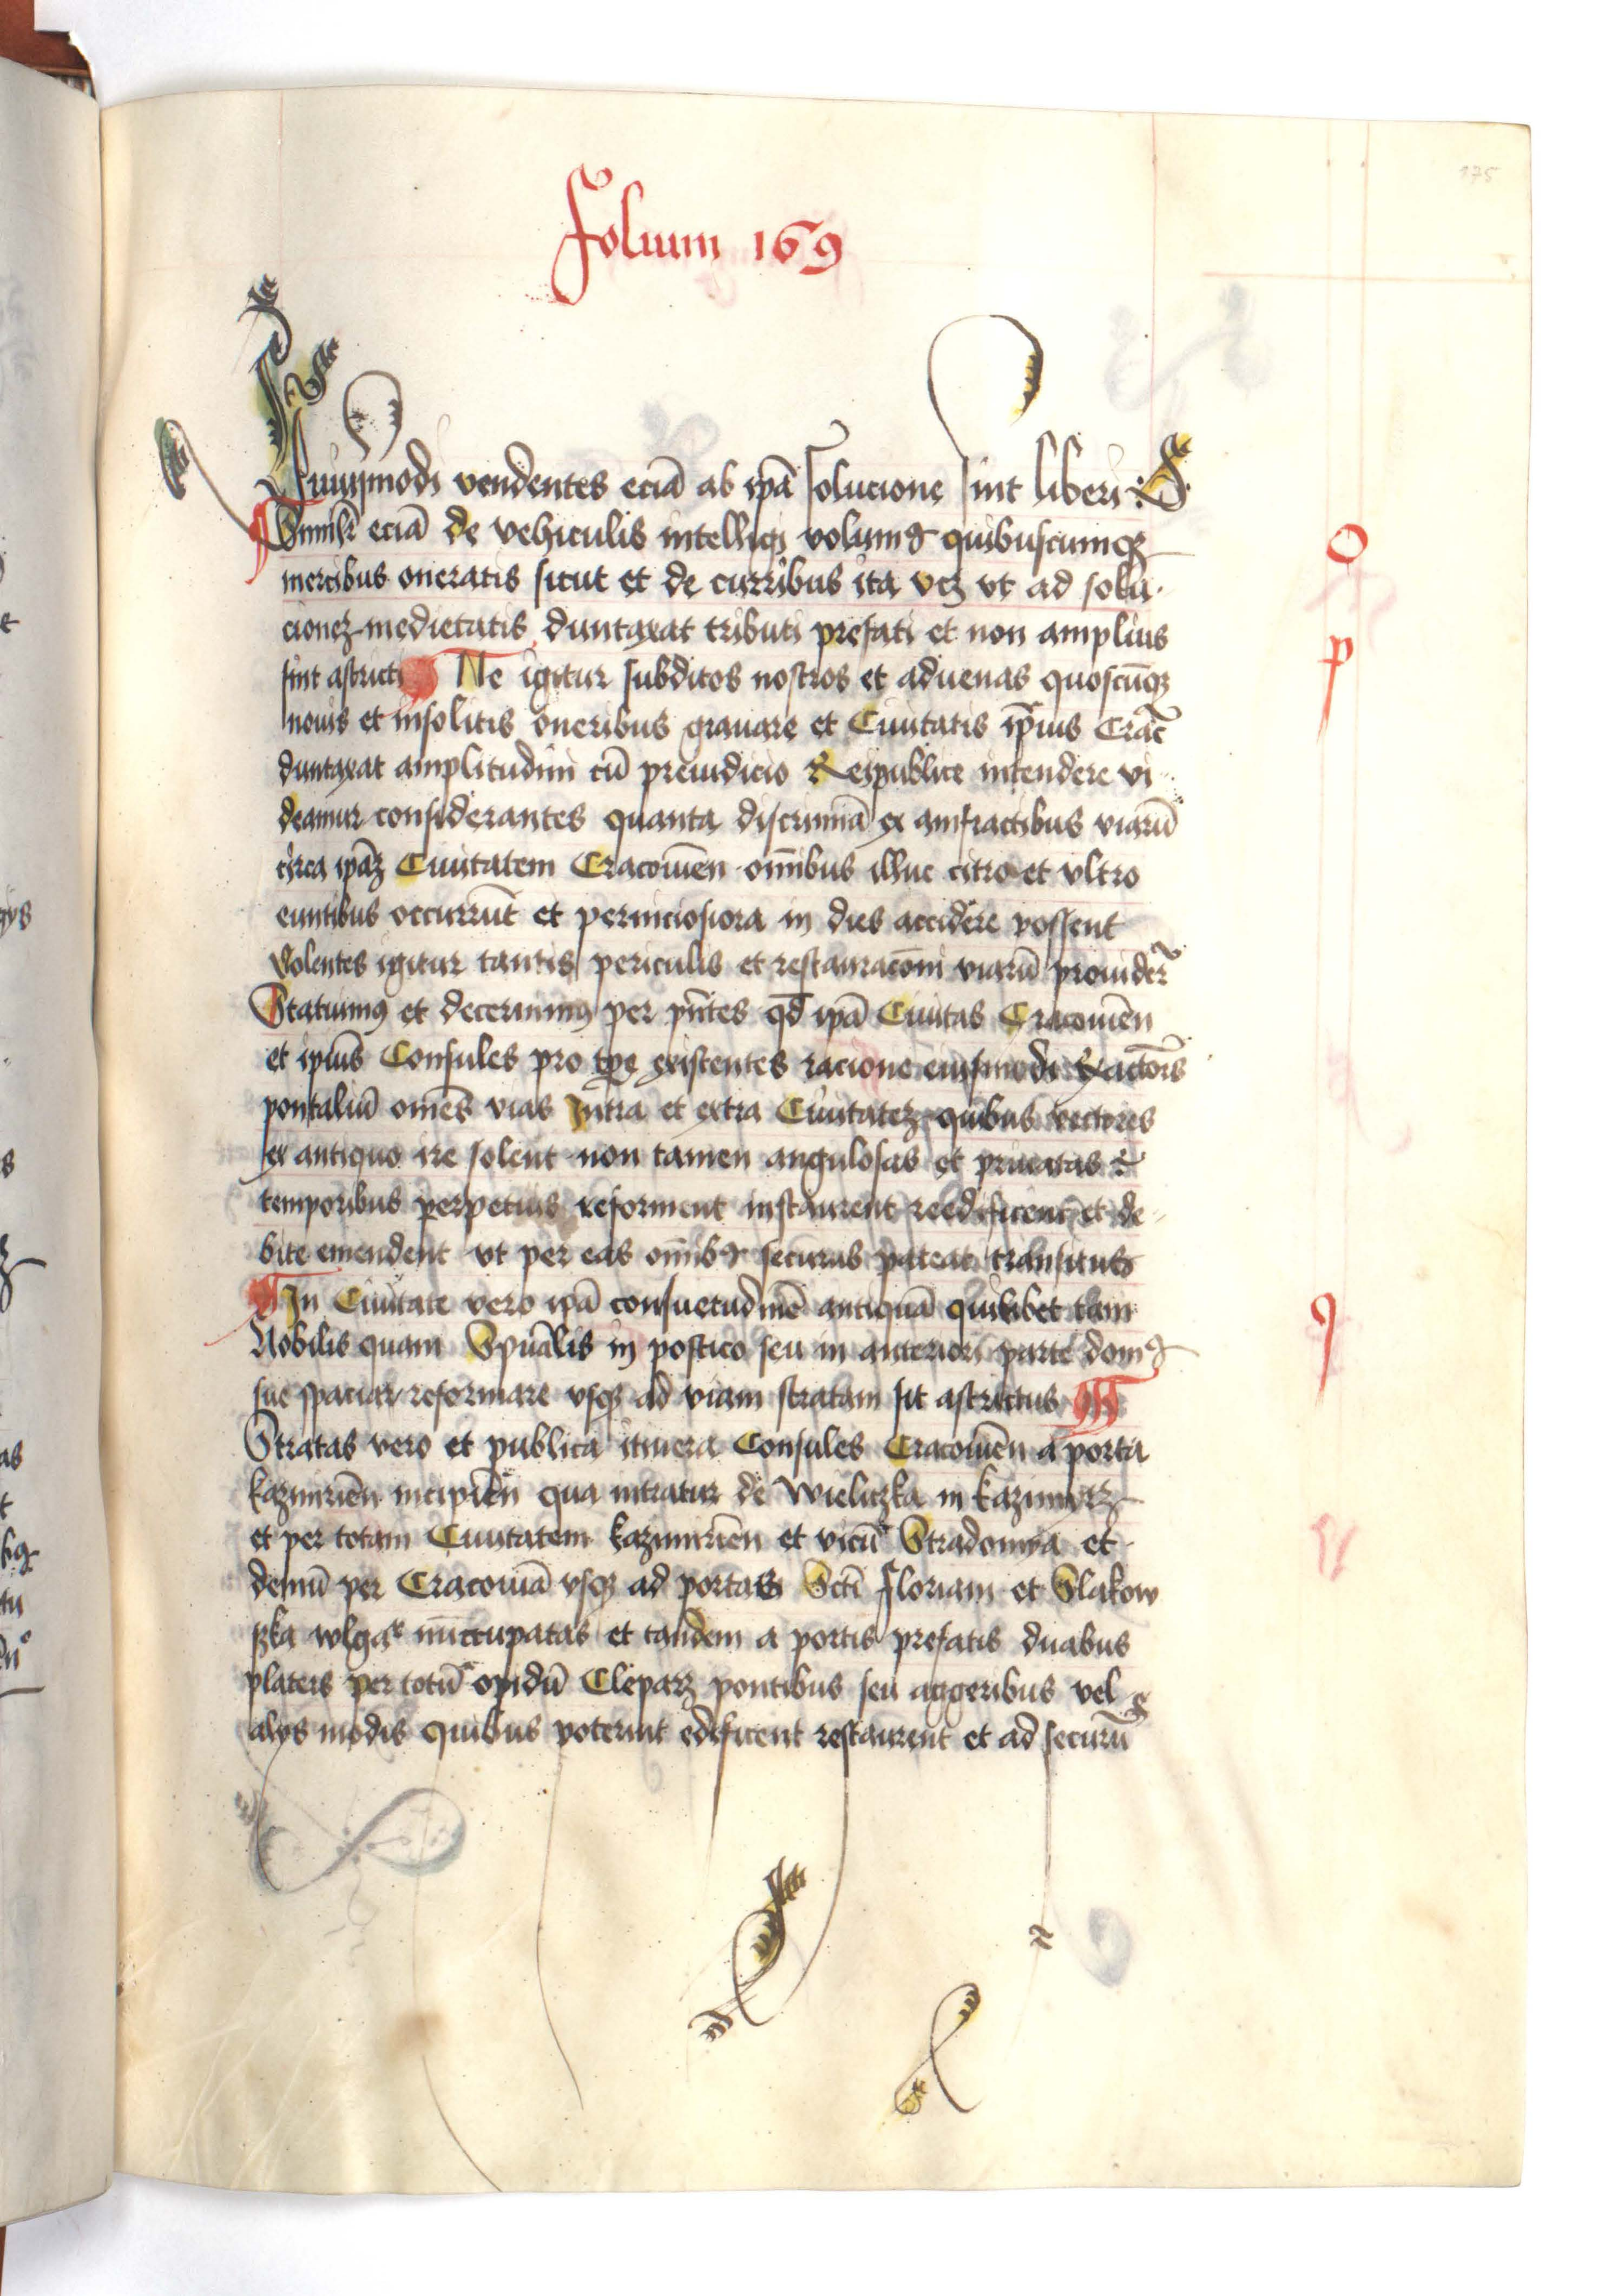 175
Folium 169
Huiusmodi vendentes eciā ab ipā solucione sint liberi
Similr eciā de vehiculis intelligi volumꝰ quibuscumqꝫ
mercibus oneratis sicut et de curribus ita vcꝫ vt ad solu-
cioneꝫ medietatis duntaxat tributi prefati et non amplius
sint astricti Ne igitur subditos nostros et aduenas quoscūqꝫ
nouis et insolitis oneribus grauare et Ciuitatis ip̄ius Crac
duntaxat amplitudini cū preiudicio Reipublice intendere vi-
deamur considerantes quanta discrimīa ex amfractibus viarū
circa ipāꝫ Ciuitatem Cracouiēn omībus illuc citro et vltro
euntibus occurrūt et perniciosiora in dies accidere possent
Volentes igitur tantis periculis et restauracōni viarū prouider
Statuimꝰ et decernimꝰ per pn̄tes qd̄ ipā Ciuitas Cracouiēn
et ipiūs Consules pro tpē existentes racione eiusmodi Exactōis
pontaliū omēs vias Intra et extra Ciuitateꝫ quibus vectores
ex antiquo ire solent non tamen angulosas et priuatas
temporibus perpetuis reforment instaurent reedificent et de-
bite emendent vt per eas omībꝰ securus pateat transitus
In Ciuitate vero ipā consuetudinē antiquā quilibet tam
Nobilis quam Spuālis in postico seu in anteriori parte domꝰ
sue spaciar reformare vsqꝫ ad viam stratam sit astrictus
Stratas vero et publica itinera Consules Cracouiēn a porta
kazimiriēn incipiēn qua intratur de Wieliczka in kazimyrz
et per totam Ciuitatem kazimiriēn et vicū Stradomya et
demū per Cracouiā vsqꝫ ad portas Sctī Floriani et Slakow
szka wlgar nūccupatas et tandem a portis prefatis duabus
plateis per totū opidū Cleparz pontibus seu aggeribus vel
alys modis quibus poterint edificent restaurent et ad securū
o
p
q